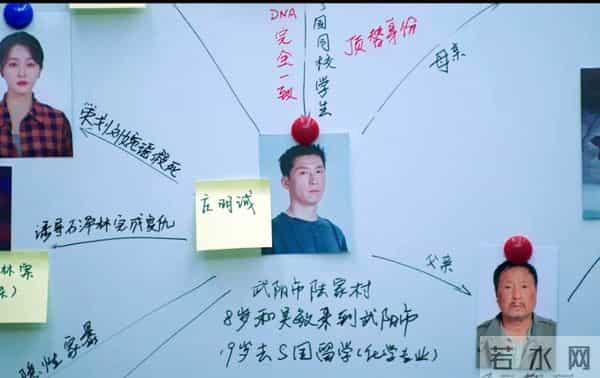 DNA完全一致
国同校学生
顶替身份
母亲
策划
诱导石泽林完成复仇
庄明诚
父亲
武阳市陆家村
8岁和吴敏来到武阳市
19岁去S国留学(化学专业)
隐性家暴
若水网